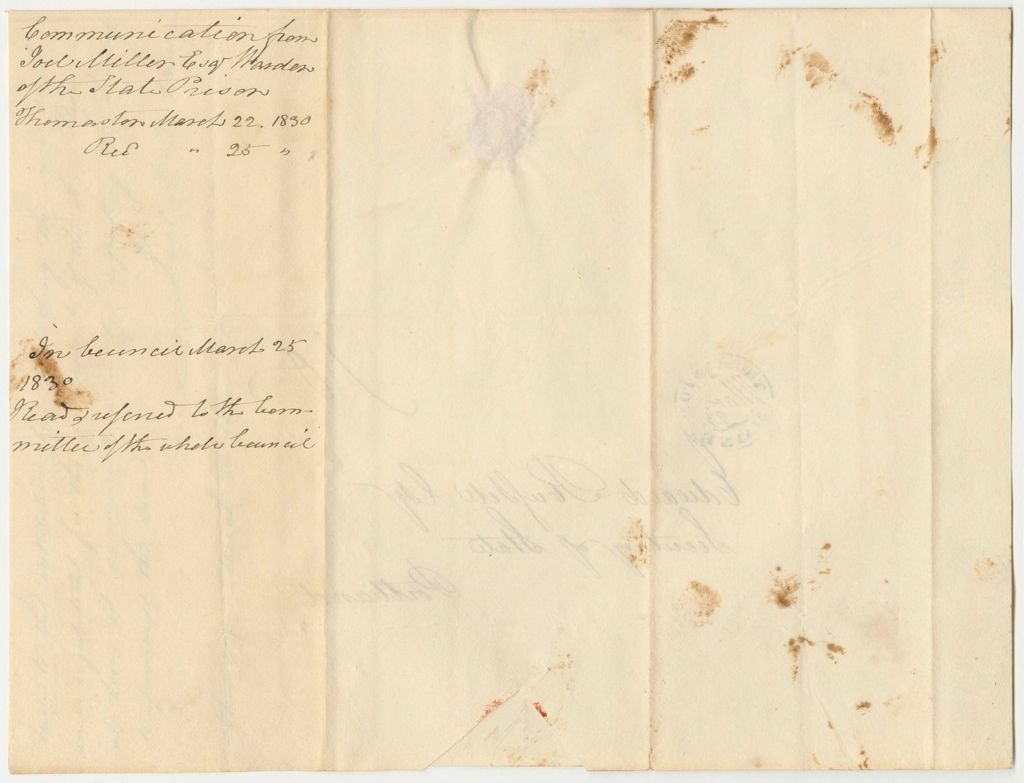 Communication from
Joel Miller Esqr Warden
of the State Prison
Thomaston March 22. 1830
Recd " 25 "
In Council March 25
1830
Read & referred to the Com-
mittee of the whole Council
Edward Russell Esqr
Secretary of State
Portland